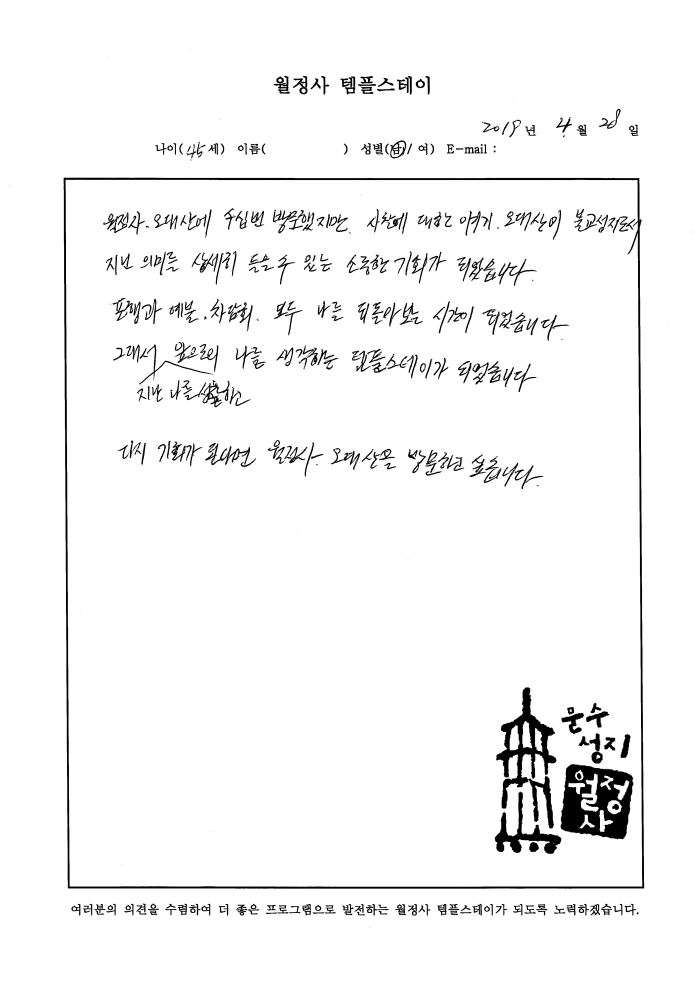 월정사 템플스테이
2019년 4월 28일
나이(45세) 이름( ) 성별(남/여) E-mail :
월정사. 오대산에 수십번 방문했지만. 사찰에 대한 이야기. 오대산이 불교성지로서
지닌 의미를 상세히 들을 수 있는 소중한 기회가 되었습니다.
포행과 예불. 차담회. 모두 나를 되돌아보는 시간이 되었습니다.
그래서 앞으로의 나를 생각하는 템플스테이가 되었습니다
지난 나를 성찰하고
다시 기회가 된다면 월정사. 오대산을 방문하고 싶습니다.
문수
성지
월정
사
여러분의 의견을 수렴하여 더 좋은 프로그램으로 발전하는 월정사 템플스테이가 되도록 노력하겠습니다.